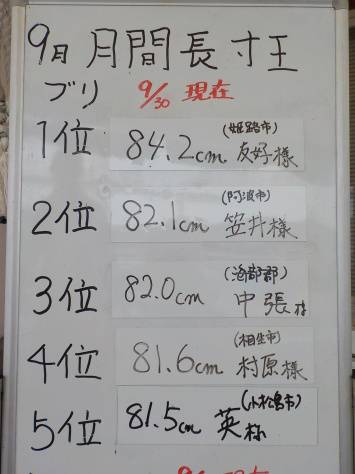 9月 月間長寸王
ブリ 9/30 現在
1位 84.2cm (姫路市) 友好様
2位 82.1cm (阿波市) 笠井様
3位 82.0cm (海部郡) 中張様
4位 81.6cm (相生市) 村原様
5位 81.5cm (小松島市) 英様